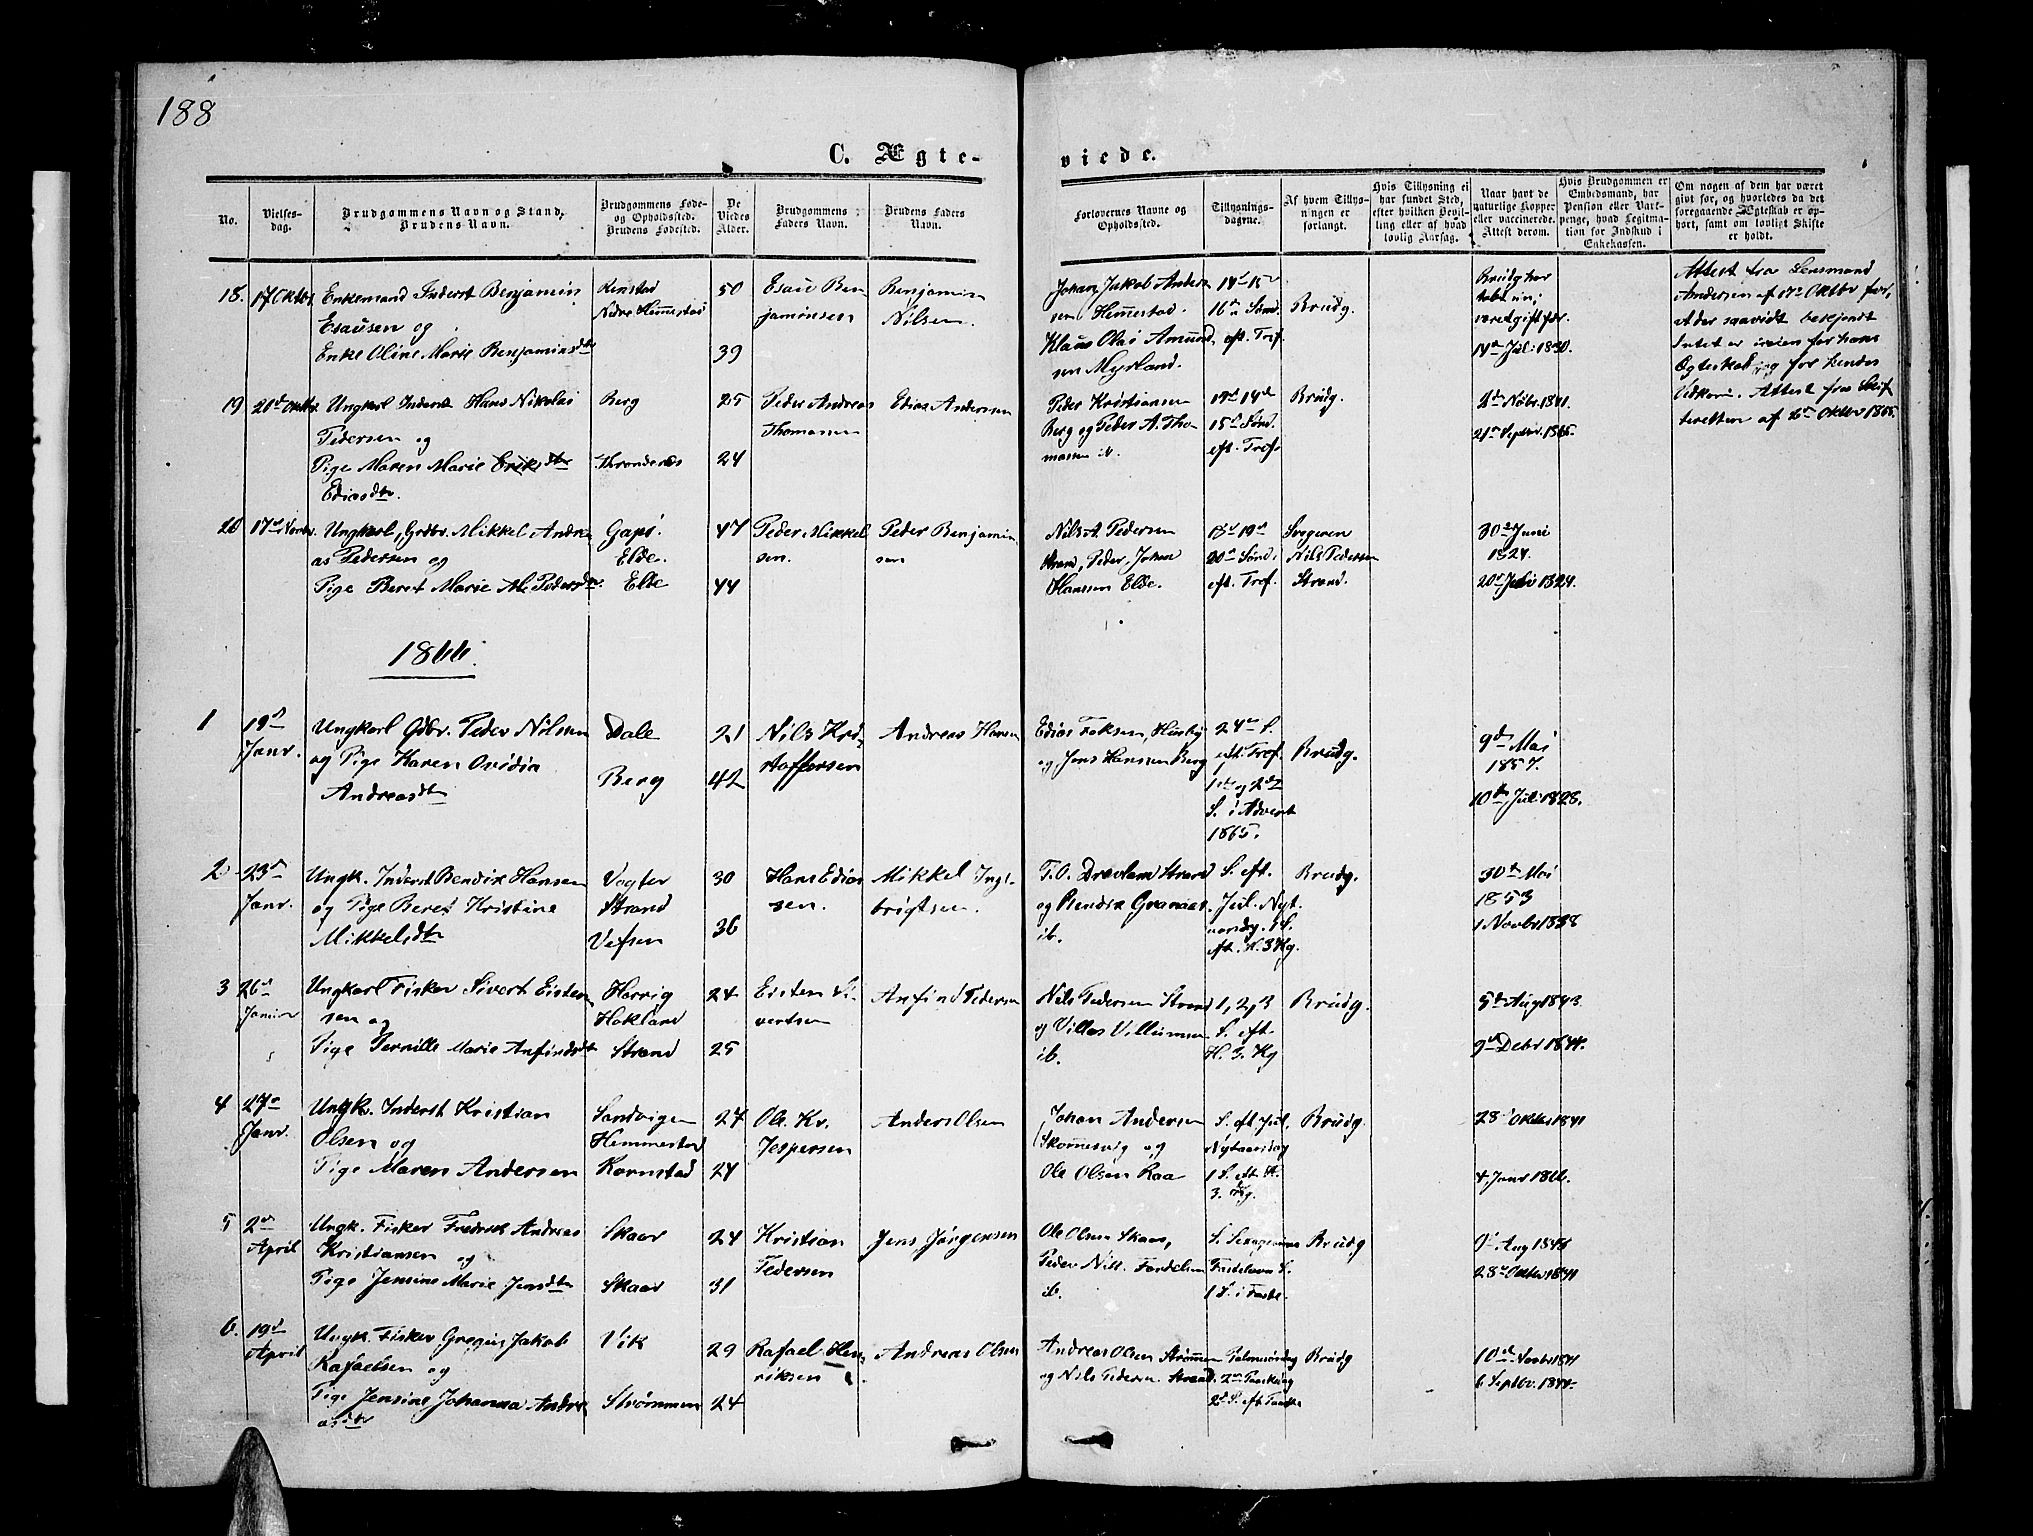 188
C. Ægte-
viede.
No.
Vielses-
dag.
Brudgommens Navn og Stand,
Brudens Navn.
Brudgommens Føde-
og Opholdssted.
Brudens Fødested.
De
Viedes
Alder.
Brudgommens
Faders Navn.
Brudens Faders
Navn.
Forlovernes Navne og
Opholdssted.
Tillysnings-
dagene.
Af hvem Tillys-
ningen er
forlangt.
Hvis Tillysning ei
har fundet Sted,
efter hvilken Bevil-
ling eller af hvad
lovlig Aarsag.
Naar havt de
naturlige Kopper
eller vaccinerede.
Attest derom.
Hvis Brudgommen er
Embedsmand, har
Pension eller Vart-
penge, hvad Legitima-
tion for Indskud i
Enkekassen.
Om nogen af dem har været
gift før, og hvorledes da det
foregaaende Ægteskab er op-
hørt, samt om lovligt Skifte
er holdt.
18. 17 Oktbr. Enkemand Inderst Benjamin
Esausen og
Enke Oline Marie Benjaminsdtr
Nedre Hemmestad
50
39
Esau Ben
jaminsen
Benjamin
Nilsen.
Johan Jakob Anders
sen Hemmestad.
Klaus Olai Amund
sen Myrland.
14de 15de
16de Sønd.
eft. Tref.
Brudg.
14de Juli 1830.
Attest fra Lensmand
Andersen af 17de Oktbr for,
at der saavidt bekjendt
Intet er iveien for hans
Ægteskab og for hendes
Vedkom. Attest fra Skif
teretten af 6te Oktbr 1865.
19 21de Oktbr. Ungkarl Inderst Hans Nikolai
Pedersen og
Pige Maren Marie Eriksdtr
Ediasdtr.
Berg
Throndenes
25
24
Peder Andreas
Thomassen
Edias Andersen
Peder Kristiansen
Berg og Peder A. Tho
massen ib.
14de
15de Sønd.
eft. Tref.
Brudg.
2de Novbr. 1841.
21de Septbr. 1865.
20 17de Novbr. Ungkarl, Grdbr. Mikkel Andre
as Pedersen og
Pige Beret Marie M. Pedersdtr.
Gapø.
Elde.
Elde
47
44
Peder Mikkel
sen.
Peder Benjamin
sen
Nils A. Pedersen
Strand, Peder Johan
Hanssen Elde.
18de 19de
20de Sønd.
eft. Tref.
Svogeren
Nils Pedersen
Strand.
30te Juni
1824.
20de Juli 1824.
1866.
1 19de
Janr.
Ungkarl Gdbr. Peder Nilsen
og Pige Karen Ovidia
Andreasdtr
Dale
Berg
21
42
Nils Kri
stoffersen
Andreas Hansen
Edias Foksen, Husby
og Jens Hanssen Berg
24de S.
eft. Tref.
1ste og 2den
S. i Advent
1865.
Brudg.
9de Mai
1857.
10de Juli 1828.
2 23de
Janr.
Ungk. Inderst Bendix Hansen
og Pige Beret Kristine
Mikkelsdtr
Vogter
Strand
Vefsen
30
36
Hans Edias
sen.
Mikkel Inge
brigtsen.
T. O. Drevland Strand
og Bendix Granaas
ib.
S. eft.
Jul. Nyt.
aarsdg. 1 S.
eft. H. 3 Kg.
Brudg.
30te Mai
1853
1 Novbr 1838
3 26de
Janr
Ungkarl Fisker Sivert Eisten
sen og
Pige Pernille Marie Anfindsdtr
Horvig
Hokland
Strand
24
25
Eisten Si
vertsen
Anfind Pedersen
Nils Pedersen Strand
og Villas Villumsen
ib.
1, 2, 3
S. eft.
H. 3. Kg
Brudg.
5te Aug 1843
9de Debr 1844.
4 27de
Janr.
Ungk. Inderst Kristian
Olsen og
Pige Maren Andersen
Sandvigen
Hemmestad
Kornstad
27
24
Ole Kr.
Jespersen
Anders Olsen
Johan Andersen
Skommesvig og
Ole Olsen Raa
S. eft Jul,
Nytaarsdag
1 S. eft H.
3. Kg.
Brudg.
28 Oktbr 1841
4 Janr 1866.
5 2den
April
Ungk. Fisker Fredrik Andreas
Kristiansen og
Pige Jensine Marie Jensdtr
Skaar
Skaar
24
31
Kristian
Pedersen
Jens Jørgensen
Ole Olsen Skaar,
Peder Nils. Fordelsen
ib.
S. Sexagesima
Fastelavn S.
1 S. i Faste.
Brudg
28de Oktbr 1841
6. 19de
April
Ungk. Fisker Gregius Jakob
Rafaelsen og
Pige Jensine Johanna Andre
asdtr
Vik
Strømmen
29
24
Rafael Hen
riksen
Andreas Olsen
Andreas Olsen Strømmen
og Nils Pedersen Strand.
Palmesøndag
2den Paaskedag
2de S. eft Paaske
Brudg
10de Novbr 1841
6 Septbr. 1844.